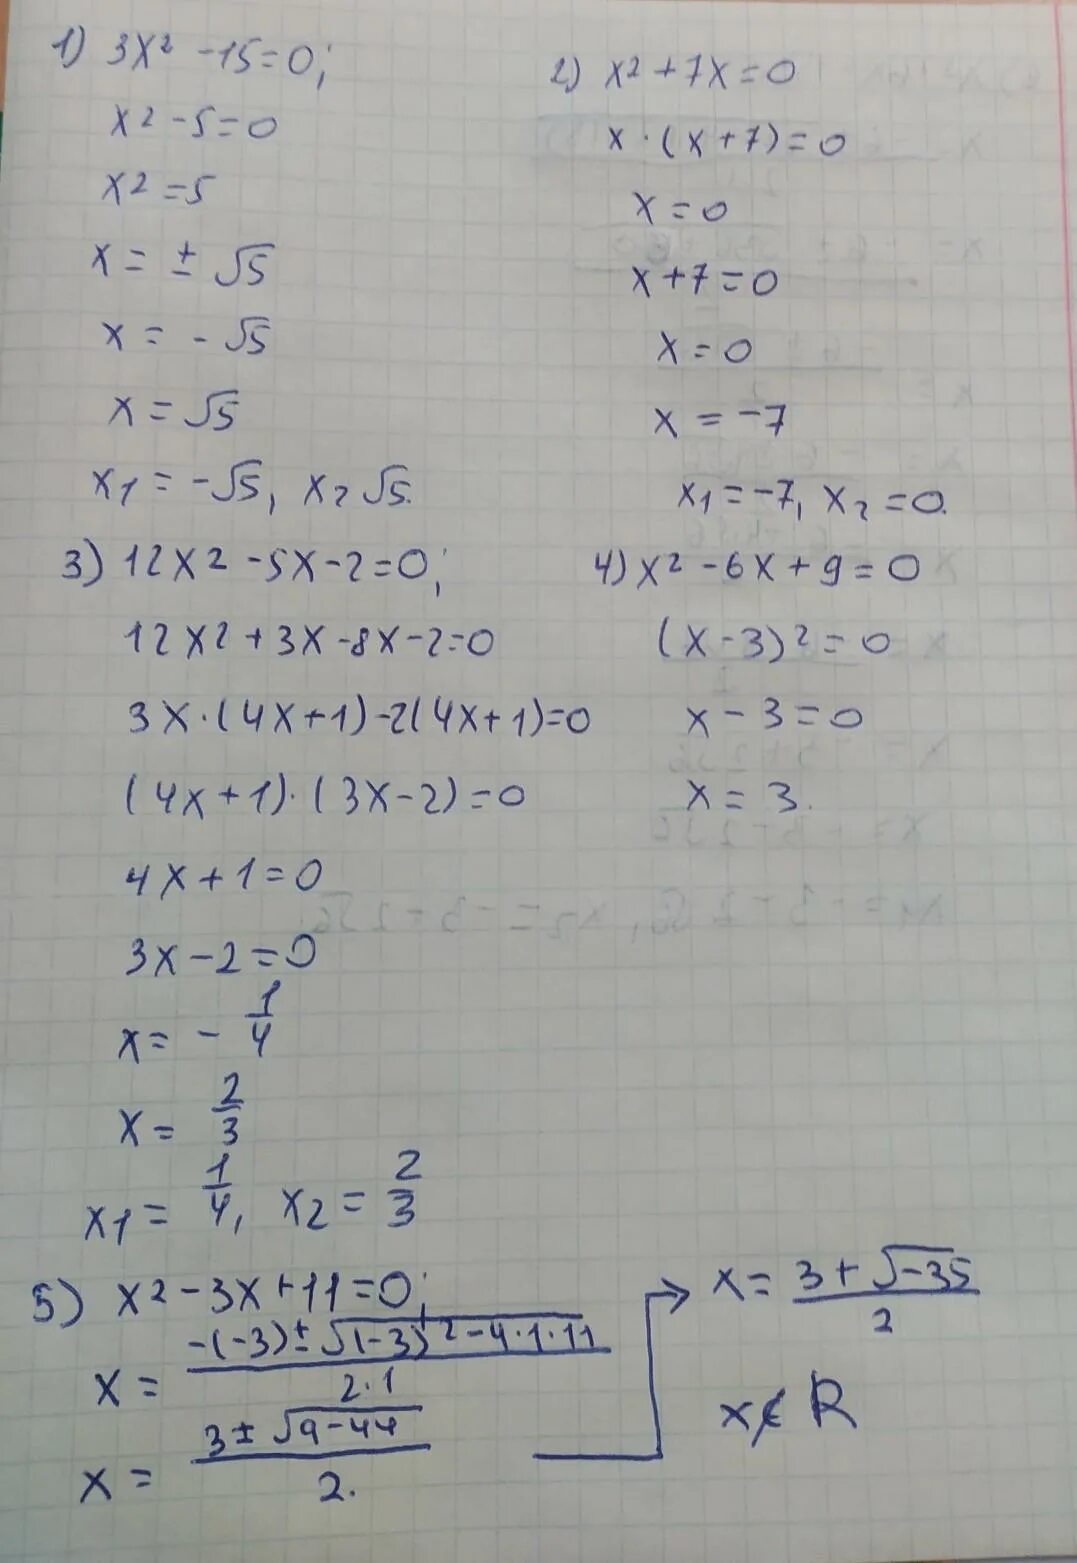 1) 3x² -15=0;
x² -5=0
x² =5
x = ± √5
x = - √5
x = √5
x₁ = -√5, x₂ √5.
2) x² +7x=0
x · (x+7)=0
x=0
x+7=0
x=0
x = -7
x₁ =-7, x₂ =0.
3) 12x² -5x-2=0;
12x² +3x-8x-2=0
3x·(4x+1)-2(4x+1)=0
(4x+1)·(3x-2)=0
4x+1=0
3x-2=0
x= - 1/4
x= 2/3
x₁= 1/4, x₂ = 2/3
4) x² -6x+9=0
(x-3)²=0
x-3=0
x=3.
5) x²-3x+11=0;
x = (-(-3)±√((-3)²-4·1·11))/(2·1)
x = (3±√(9-44))/2.
→ x= (3+√(-35))/2
x∉ R